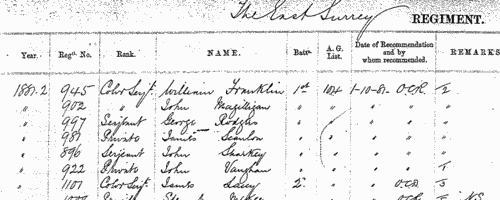 The East Surrey REGIMENT.
Year. Regtl. No. Rank. NAME. Battn. A. G. List. Date of Recommendation and by whom recommended. REMARKS
1881-2 945 Color Serjt. William Franklin 1st 104 1-10-81 O.C.R. 1/2
" 902 " John Magilligan " " " " "
" 997 Serjeant George Rodgers " " " " "
" 987 Private James Scanlon " " " "
" 896 Serjeant John Sharkey " " " "
" 922 Private John Vaughan " " " " 1
" 1101 Color Serjt. James Lacey 2 " " O.C.R.